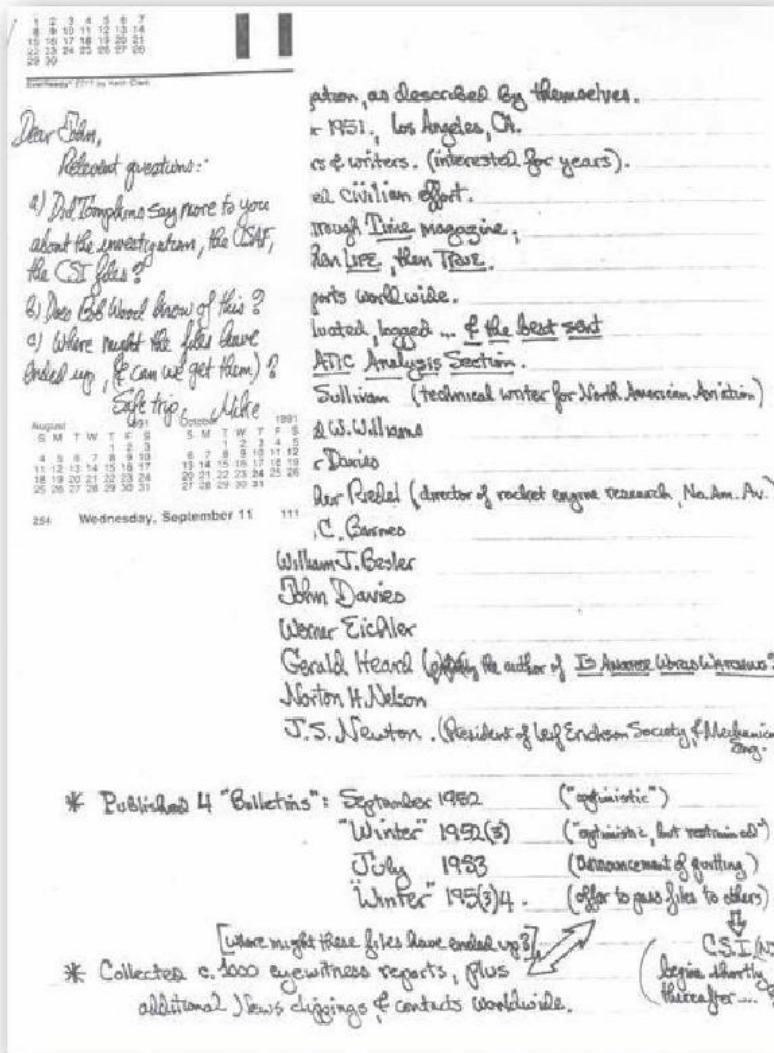 1 2 3 4 5 6 7
8 9 10 11 12 13 14
15 16 17 18 19 20 21
22 23 24 25 26 27 28
29 30
11
by Keith Clark
Dear John,
Relevant questions:
a) Did Tompkins say more to you
about the investigation, the USAF,
the CSI files?
b) Does Bob Wood know of this?
c) Where might the files have
ended up, (& can we get them)?
Safe trip, Mike
August
S M T W T F S
1 2 3
4 5 6 7 8 9 10
11 12 13 14 15 16 17
18 19 20 21 22 23 24
25 26 27 28 29 30 31
October 1991
S M T W T F S
1 2 3 4 5
6 7 8 9 10 11 12
13 14 15 16 17 18 19
20 21 22 23 24 25 26
27 28 29 30 31
254 Wednesday, September 11 111
ation, as described by themselves.
r 1951, Los Angeles, CA.
rs & writers. (interested for years).
ed civilian effort.
rough Time magazine,
hen LIFE, then TRUE.
ports worldwide.
luated, logged ... & the best sent
ATIC Analysis Section.
Sullivan (technical writer for North American Aviation)
d W. Williams
r Davies
Riedel (director of rocket engine research, No. Am. Av.)
C. Barnes
William J. Besler
John Davies
Werner Eichler
Gerald Heard the author of IS ANOTHER WORLD WATCHING?
Norton H. Nelson
J.S. Newton. (President of Leif Erickson Society, & Mechanic
Eng.
* Published 4 "Bulletins": September 1952 ("optimistic")
"Winter" 1952(3) ("optimistic, but restrained")
July 1953 (announcement of quitting)
"Winter" 195(3)4. (offer to pass files to others)
[where might these files have ended up?]
C.S.I. (NY
begins shortly
thereafter....
* Collected c. 1000 eyewitness reports, plus
additional News clippings & contacts worldwide.